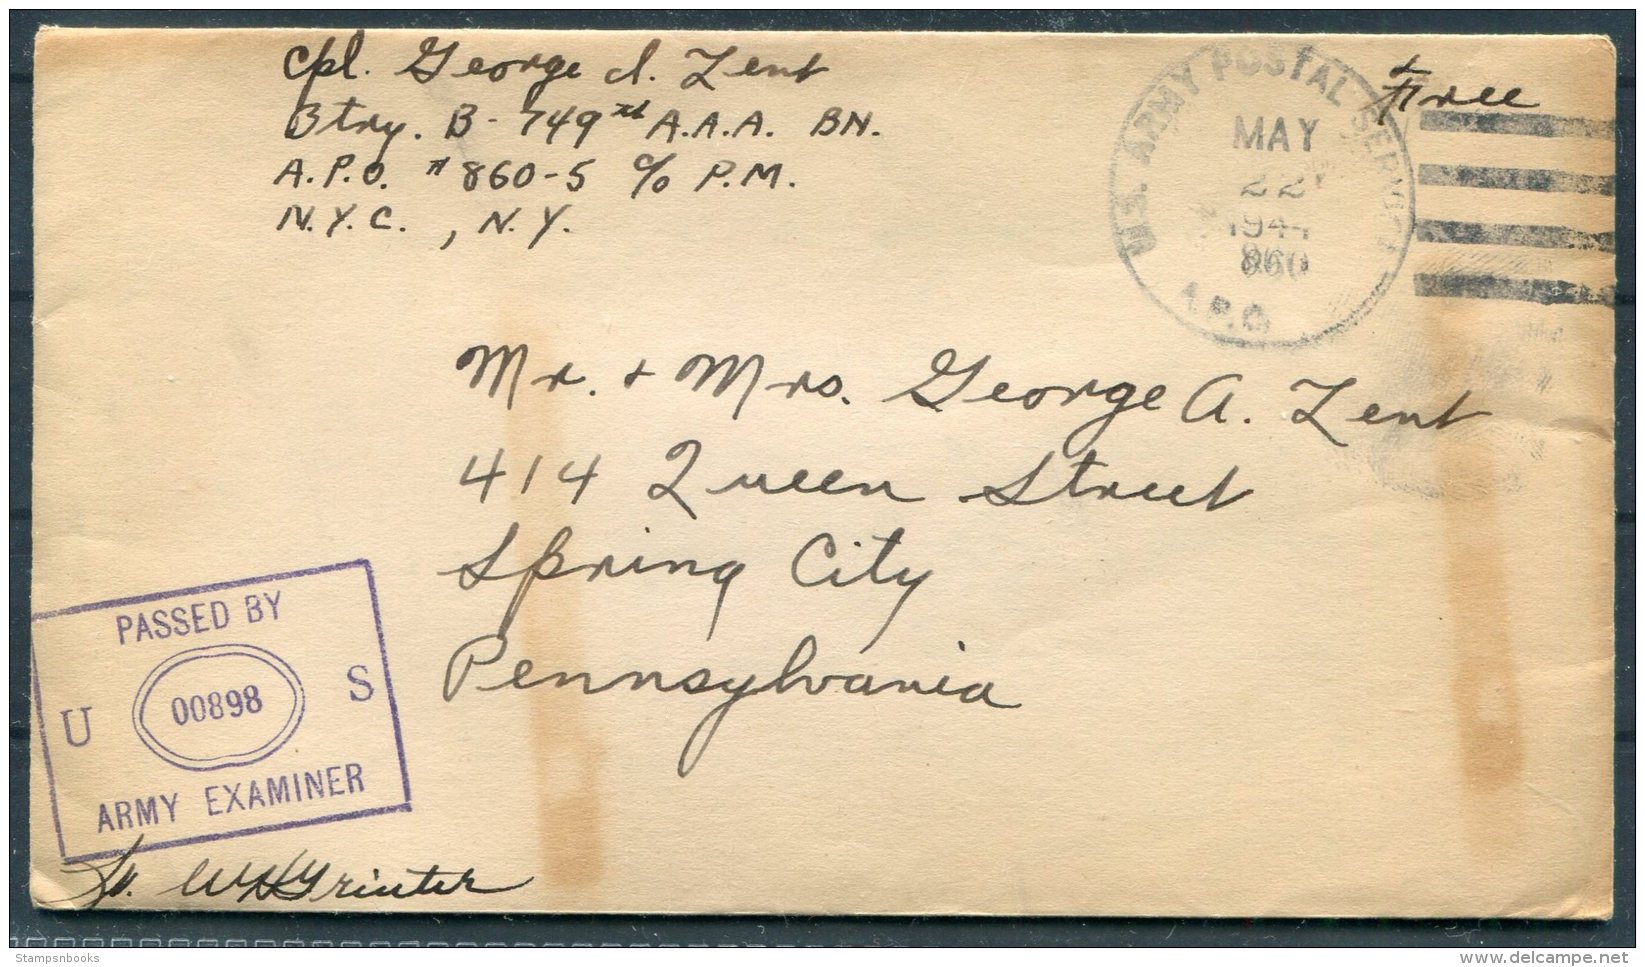 Cpl. George I. Zent
Btry. B - 749th A.A.A. BN.
A.P.O. # 860-5 c/o P.M.
N.Y.C., N.Y.
Free
U.S. ARMY POSTAL SERVICE
MAY
22
1944
860
A.P.O.
Mr. + Mrs. George A. Zent
414 Queen Street
Spring City
Pennsylvania
PASSED BY
U 00898 S
ARMY EXAMINER
Stampsnbooks
delcampe.net